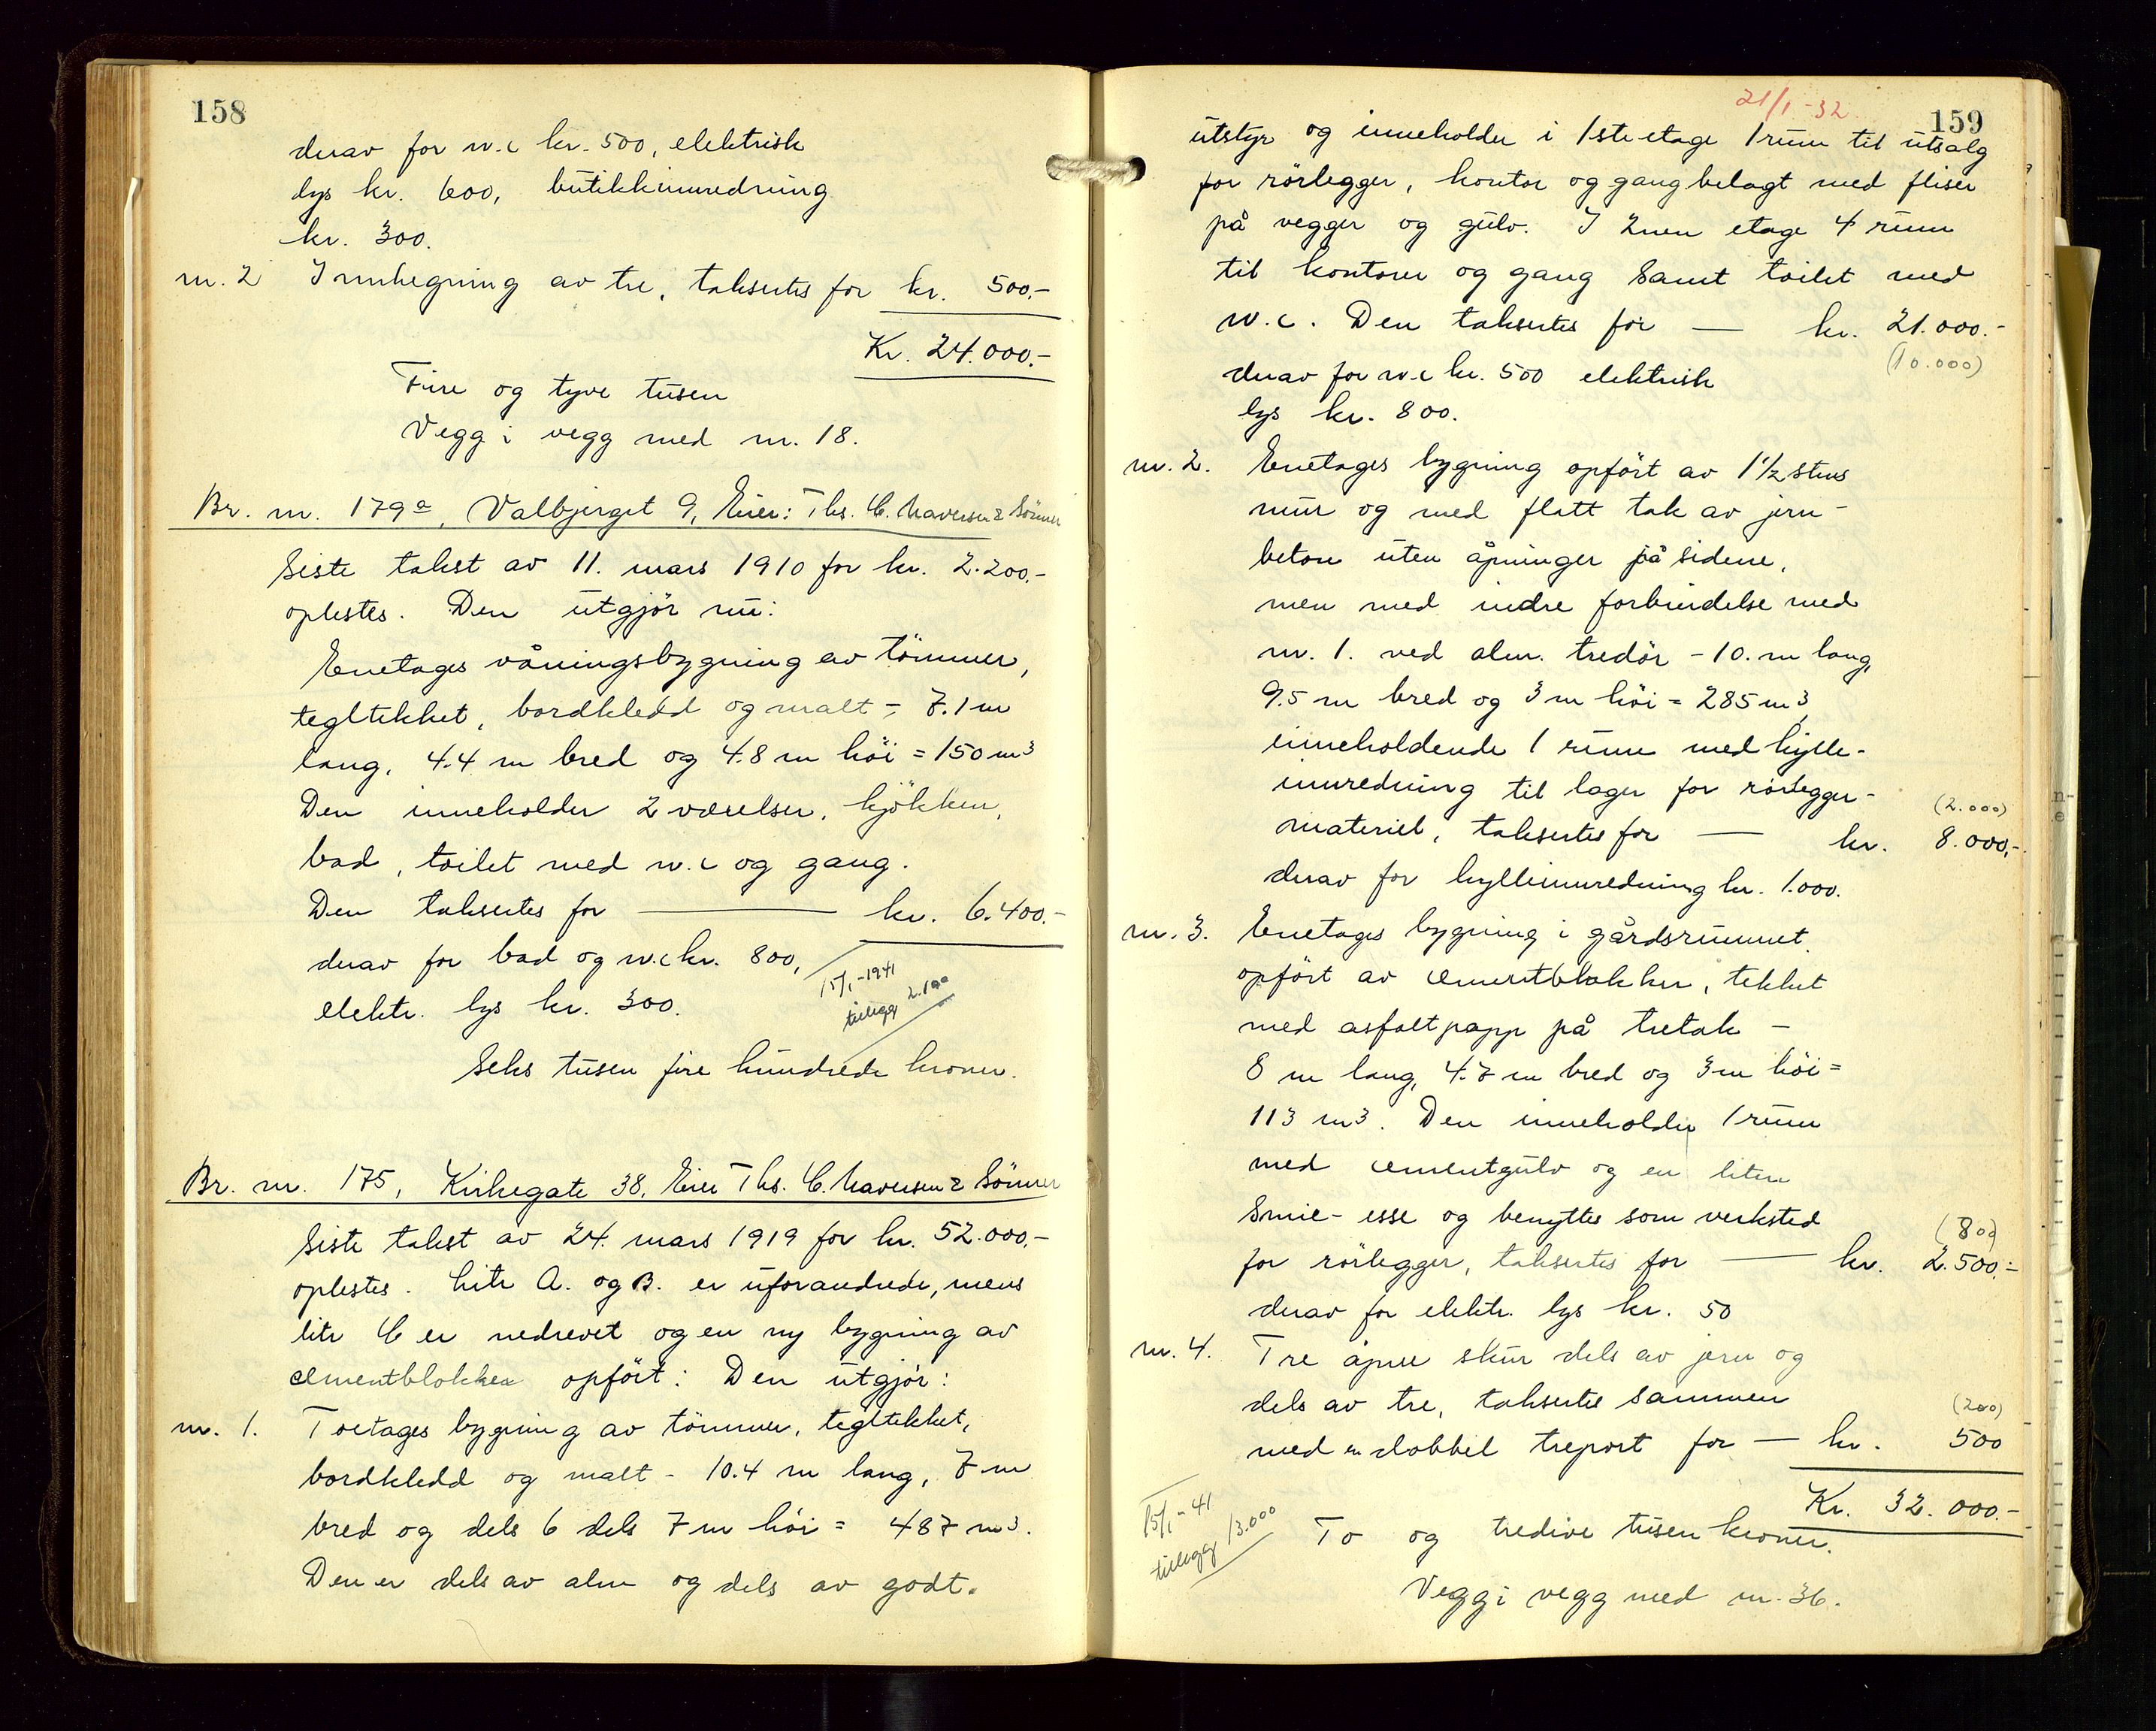 158
derav for w.c kr. 500, elektrisk
lys kr. 600, butikkinnredning
kr. 300.
nr. 2 Innhegning av tre, taksertes for kr. 500.-
Kr. 24.000.-
Fire og tyve tusen
Vegg i vegg med nr. 18.
Br. nr. 179a, Valbjerget 9, Eier: Ths. C. & Sönner
Siste takst av 11. mars 1910 for kr. 2.200.-
oplestes. Den utgjör nu:
Enetages våningsbygning av tömmer,
tegltekket, bordkledd og malt - 7.1 m
lang, 4.4 m bred og 4.8 m höi = 150 m3
Den inneholder 2 værelser, kjökken,
bad, toilet med w.c og gang.
Den taksertes for — kr. 6.400.-
derav for bad og w.c kr. 800,
elektr. lys kr. 300.
15/1-1941
tillegg 2.100
Seks tusen fire hundrede kroner.
Br. nr. 175, Kirkegate 38, Eier Ths. C. & Sönner
Siste takst av 24. mars 1919 for kr. 52.000.-
oplestes. Litr A. og B. er uforandrede, mens
litr C er nedrevet og en ny bygning av
cementblokker opfört: Den utgjör:
nr. 1. Toetages bygning av tömmer, tegltekket,
bordkledd og malt - 10.4 m lang, 7 m
bred og dels 6 dels 7 m höi = 487 m3.
Den er dels av alm og dels av godt.
21/1-32
159
utstyr og inneholder i 1ste etage 1 rum til utsalg
for rörlegger, kontor og gang belagt med fliser
på vegger og gulv. I 2nen etage 4 rum
til kontorer og gang samt toilet med
w.c. Den taksertes for — kr. 21.000.-
(10.000)
derav for w.c kr. 500 elektrisk
lys kr. 800.
nr. 2. Enetages bygning opfört av 1 1/2 stens
mur og med flatt tak av jern-
beton uten åpninger på sidene,
men med indre forbindelse med
nr. 1. ved alm. tredör - 10. m lang,
9.5 m bred og 3 m höi = 285 m3,
inneholdende 1 rum med hylle-
innredning til lager for rörlegger-
(2.000)
materiel, taksertes for — kr. 8.000.-
derav for hylleinnredning kr. 1.000.
nr. 3. Enetages bygning i gårdsrummet
opfört av cementblokker, tekket
med asfaltpapp på tretak -
8 m lang, 4.7 m bred og 3 m höi =
113 m3. Den inneholder 1 rum
med cementgulv og en liten
Smie-esse og benyttes som verksted
(80)
for rörlegger, taksertes for — kr. 2.500.-
derav for elektr. lys kr. 50
nr. 4. Tre åpne skur dels av jern og
dels av tre, taksertes sammen
(200)
med en dobbel treport for — kr. 500
Kr. 32.000.-
15/1-41
tillegg 13.000
To og tredive tusen kroner.
Vegg i vegg med nr. 36.